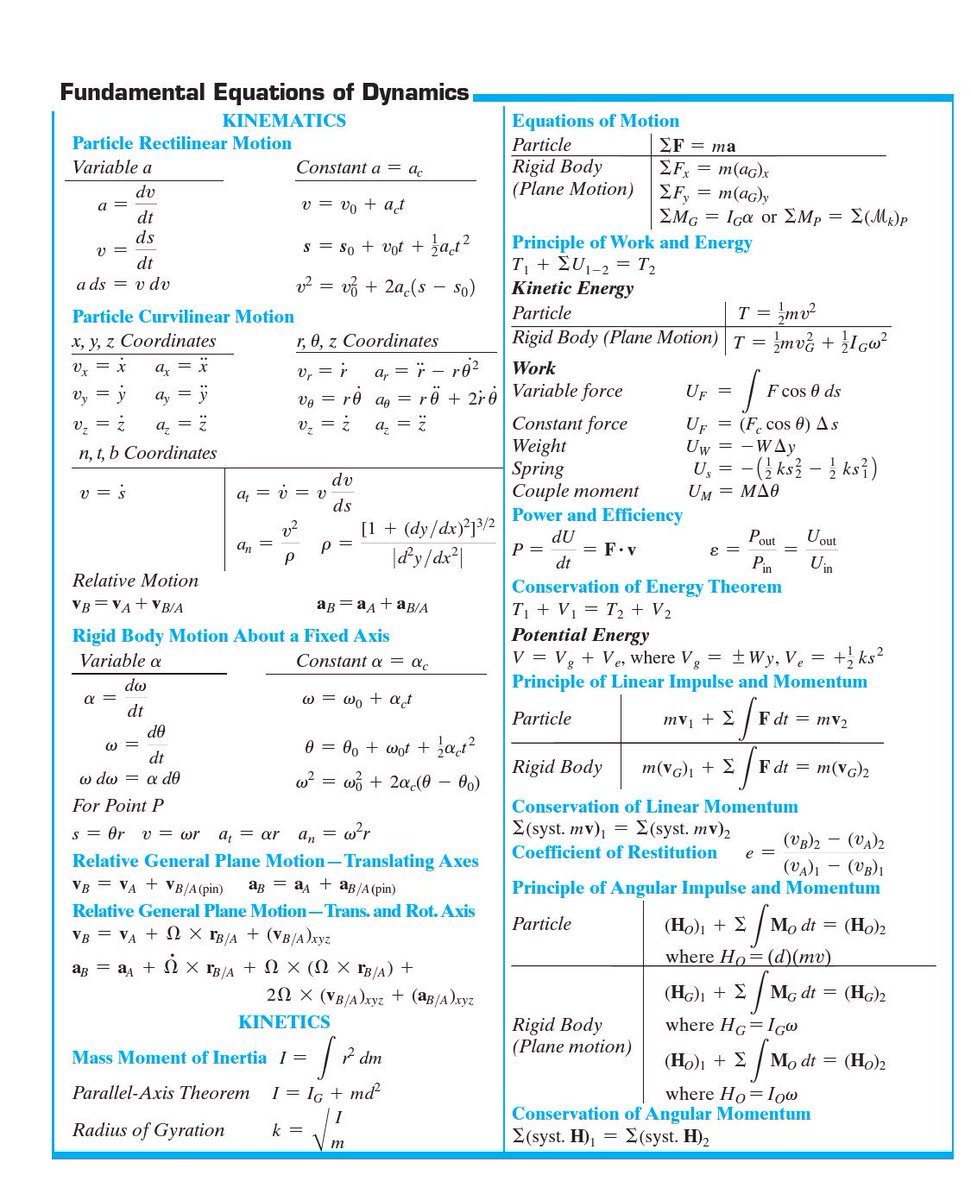 Fundamental Equations of Dynamics
KINEMATICS
Particle Rectilinear Motion
Variable a    Constant a = a_c
a = dv/dt    v = v₀ + a_c t
v = ds/dt    s = s₀ + v₀t + ½a_c t²
a ds = v dv    v² = v₀² + 2a_c(s − s₀)
Particle Curvilinear Motion
x, y, z Coordinates    r, θ, z Coordinates
vₓ = ẋ    aₓ = ẍ    v_r = ṙ    a_r = r̈ − rθ̇²
v_y = ẏ    a_y = ÿ    v_θ = rθ̇    a_θ = rθ̈ + 2ṙθ̇
v_z = ż    a_z = z̈    v_z = ż    a_z = z̈
n, t, b Coordinates
v = ṡ    a_t = v̇ = v dv/ds
a_n = v²/ρ    ρ = [1 + (dy/dx)²]^3/2 / |d²y/dx²|
Relative Motion
v_B = v_A + v_B/A    a_B = a_A + a_B/A
Rigid Body Motion About a Fixed Axis
Variable α    Constant α = α_c
α = dω/dt    ω = ω₀ + α_c t
ω = dθ/dt    θ = θ₀ + ω₀t + ½α_c t²
ω dω = α dθ    ω² = ω₀² + 2α_c(θ − θ₀)
For Point P
s = θr    v = ωr    a_t = αr    a_n = ω²r
Relative General Plane Motion—Translating Axes
v_B = v_A + v_B/A(pin)    a_B = a_A + a_B/A(pin)
Relative General Plane Motion—Trans. and Rot. Axis
v_B = v_A + Ω × r_B/A + (v_B/A)_xyz
a_B = a_A + Ω̇ × r_B/A + Ω × (Ω × r_B/A) +
2Ω × (v_B/A)_xyz + (a_B/A)_xyz
KINETICS
Mass Moment of Inertia    I = ∫ r² dm
Parallel-Axis Theorem    I = I_G + md²
Radius of Gyration    k = √(I/m)
Equations of Motion
Particle    ΣF = ma
Rigid Body    ΣFₓ = m(a_G)ₓ
(Plane Motion)    ΣF_y = m(a_G)_y
ΣM_G = I_G α or ΣM_P = Σ(ℳ_k)_P
Principle of Work and Energy
T₁ + ΣU₁₋₂ = T₂
Kinetic Energy
Particle    T = ½mv²
Rigid Body (Plane Motion)    T = ½mv_G² + ½I_G ω²
Work
Variable force    U_F = ∫ F cos θ ds
Constant force    U_F = (F_c cos θ) Δs
Weight    U_W = −W Δy
Spring    U_s = −(½ ks₂² − ½ ks₁²)
Couple moment    U_M = MΔθ
Power and Efficiency
P = dU/dt = F·v    ε = P_out/P_in = U_out/U_in
Conservation of Energy Theorem
T₁ + V₁ = T₂ + V₂
Potential Energy
V = V_g + V_e, where V_g = ±Wy, V_e = +½ ks²
Principle of Linear Impulse and Momentum
Particle    mv₁ + Σ ∫ F dt = mv₂
Rigid Body    m(v_G)₁ + Σ ∫ F dt = m(v_G)₂
Conservation of Linear Momentum
Σ(syst. mv)₁ = Σ(syst. mv)₂
Coefficient of Restitution    e = (v_B)₂ − (v_A)₂ / (v_A)₁ − (v_B)₁
Principle of Angular Impulse and Momentum
Particle    (H_O)₁ + Σ ∫ M_O dt = (H_O)₂
where H_O = (d)(mv)
(H_G)₁ + Σ ∫ M_G dt = (H_G)₂
Rigid Body    where H_G = I_G ω
(Plane motion)
(H_O)₁ + Σ ∫ M_O dt = (H_O)₂
where H_O = I_O ω
Conservation of Angular Momentum
Σ(syst. H)₁ = Σ(syst. H)₂